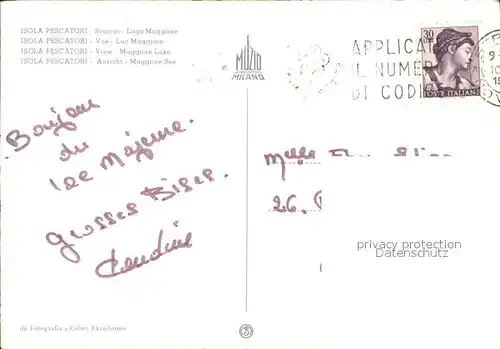 ISOLA PESCATORI - Scorcio - Lago Maggiore
ISOLA PESCATORI - Vue - Lac Maggiore
ISOLA PESCATORI - View - Maggiore Lake
ISOLA PESCATORI - Ansicht - Maggiore See
MUZIO
MILANO
APPLICAT
IL NUMER
DI CODI
30
POSTE ITALIANE
Bonjour
du
lac Majeure.
Grosses Bises.
Melle
26.
privacy protection
Datenschutz
da Fotografia a Colori Ektachrome